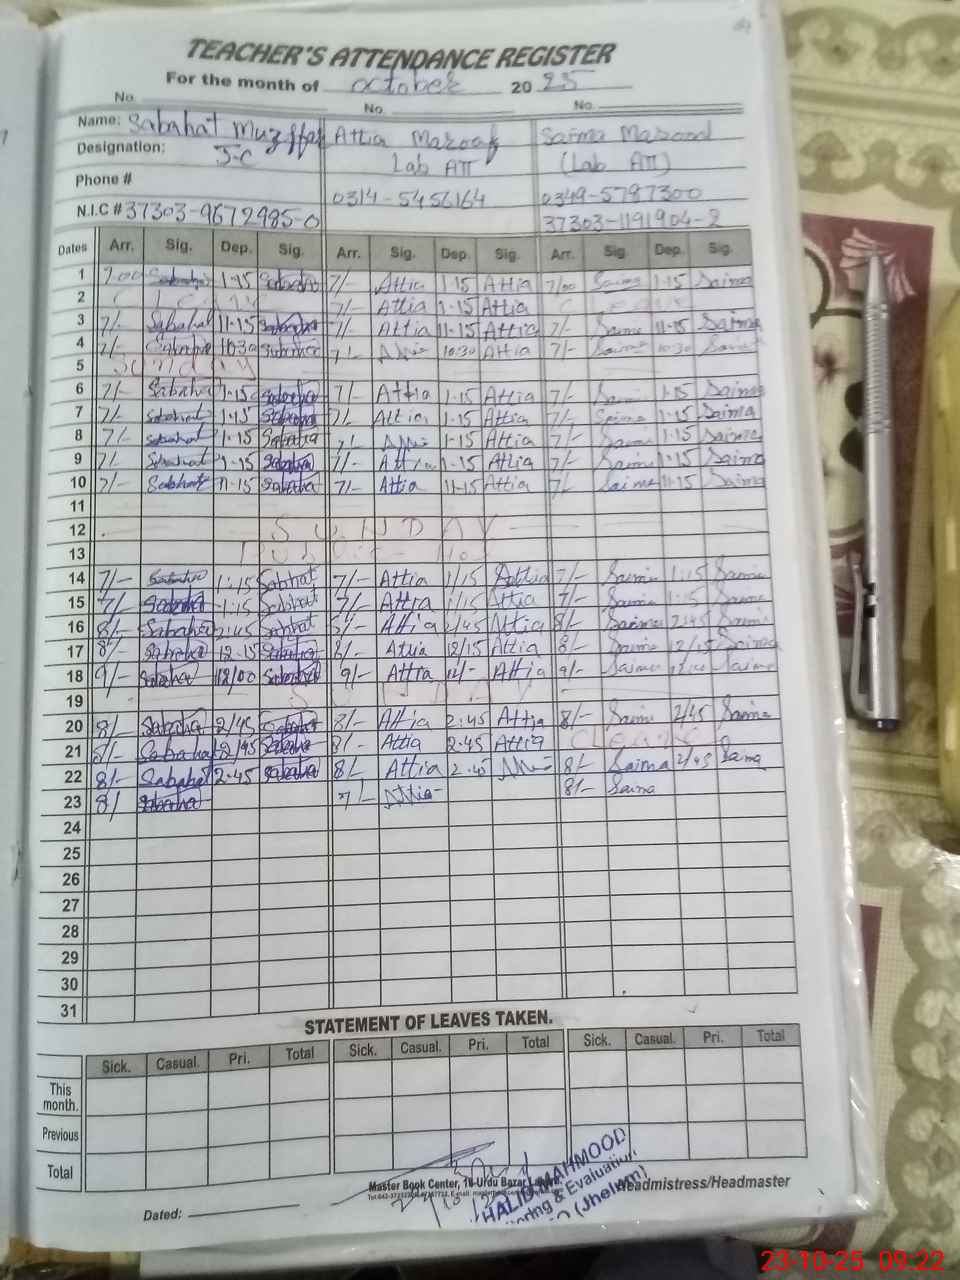 TEACHER'S ATTENDANCE REGISTER
For the month of october 2025
No. No. No.
Name: Sabahat Muzffar Attia Maroof Saima Masood
Designation: J-C Lab ATT (Lab ATT)
Phone # 0314-5456164 0349-5787300
N.I.C # 37303-9672985-0 37303-1191904-2
Dates Arr. Sig. Dep. Sig. Arr. Sig. Dep. Sig. Arr. Sig. Dep. Sig.
1 7.00 Sabahat 1-15 Sabahat 7/- Attia 1-15 Attia 7/00 Saima 1-15 Saima
2 C Leave 7/- Attia 1-15 Attia C Leave
3 7/- Sabahat 11-15 Sabahat 7/- Attia 11-15 Attia 7/- Saima 11-15 Saima
4 7/- Sabahat 10:30 Sabahat 7/- Attia 10:30 Attia 7/- Saima 10:30 Saima
5 Sunday
6 7/- Sabahat 1-15 Sabahat 7/- Attia 1-15 Attia 7/- Saima 1-15 Saima
7 7/- Sabahat 1-15 Sabahat 7/- Attia 1-15 Attia 7/- Saima 1-15 Saima
8 7/- Sabahat 1-15 Sabahat 7/- Attia 1-15 Attia 7/- Saima 1-15 Saima
9 7/- Sabahat 1-15 Sabahat 7/- Attia 1-15 Attia 7/- Saima 1-15 Saima
10 7/- Sabahat 11-15 Sabahat 7/- Attia 11-15 Attia 7/- Saima 11-15 Saima
11
12 SUNDAY
13
14 7/- Sabahat 1:15 Sabahat 7/- Attia 1/15 Attia 7/- Saima 1:15 Saima
15 7/- Sabahat 1:15 Sabahat 7/- Attia 1/15 Attia 7/- Saima 1:15 Saima
16 8/- Sabahat 2:45 Sabahat 8/- Attia 2/45 Attia 8/- Saima 2:45 Saima
17 8/- Sabahat 12-15 Sabahat 8/- Attia 12/15 Attia 8/- Saima 12/15 Saima
18 9/- Sabahat 12/00 Sabahat 9/- Attia 12/- Attia 9/- Saima Saima
19 SUNDAY
20 8/- Sabahat 2/45 Sabahat 8/- Attia 2:45 Attia 8/- Saima 2/45 Saima
21 8/- Sabahat 2/45 Sabahat 8/- Attia 2.45 Attia C Leave
22 8/- Sabahat 2.45 Sabahat 8/- Attia 2.45 Attia 8/- Saima 2/45 Saima
23 8/ Sabahat 7/- Attia 8/- Saima
24
25
26
27
28
29
30
31
STATEMENT OF LEAVES TAKEN.
Sick. Casual. Pri. Total Sick. Casual. Pri. Total Sick. Casual. Pri. Total
This month.
Previous
Total
Master Book Center, 16-Urdu Bazar
HALID MAHMOOD
Evaluation
(Jhelum)
Headmistress/Headmaster
Dated:
23-10-25 09:22